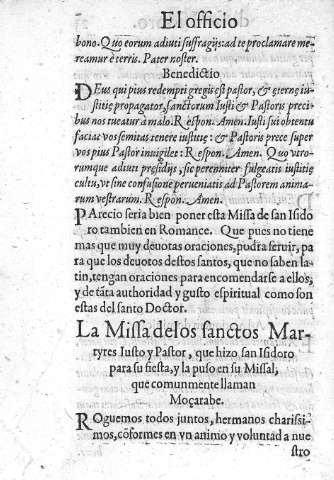 El officio
bono. Quo eorum adiuti suffragijs: ad te proclamare me-
reamur è terris. Pater noster.
Benedictio
DEus qui pius redempti gregis est pastor, & æternę iu-
stitię propagator, sanctorum Iusti & Pastoris preci
bus nos tueatur à malo. Respon. Amen. Iusti sui obtentu
faciat vos semitas tenere iustitię: & Pastoris prece super
vos pius Pastor inuigilet: Respon. Amen. Quo vtro-
rumque adiuti pręsidijs, sic perenniter fulgeatis iustitię
cultu, vt sine confusione perueniatis ad Pastorem anima-
rum vestrarum. Respon. Amen.
PArecio seria bien poner esta Missa de san Isido
ro tambien en Romance. Que pues no tiene
mas que muy deuotas oraciones, podra seruir, pa
ra que los deuotos destos santos, que no saben la
tin, tengan oraciones para encomendarse a ellos,
y de tãta authoridad y gusto espiritual como son
estas del santo Doctor.
La Missa delos sanctos Mar-
tyres Iusto y Pastor, que hizo san Isidoro
para su fiesta, y la puso en su Missal,
que comunmente llaman
Moçarabe.
ROguemos todos juntos, hermanos charissi-
mos, cõformes en vn animo y voluntad a nue
stro